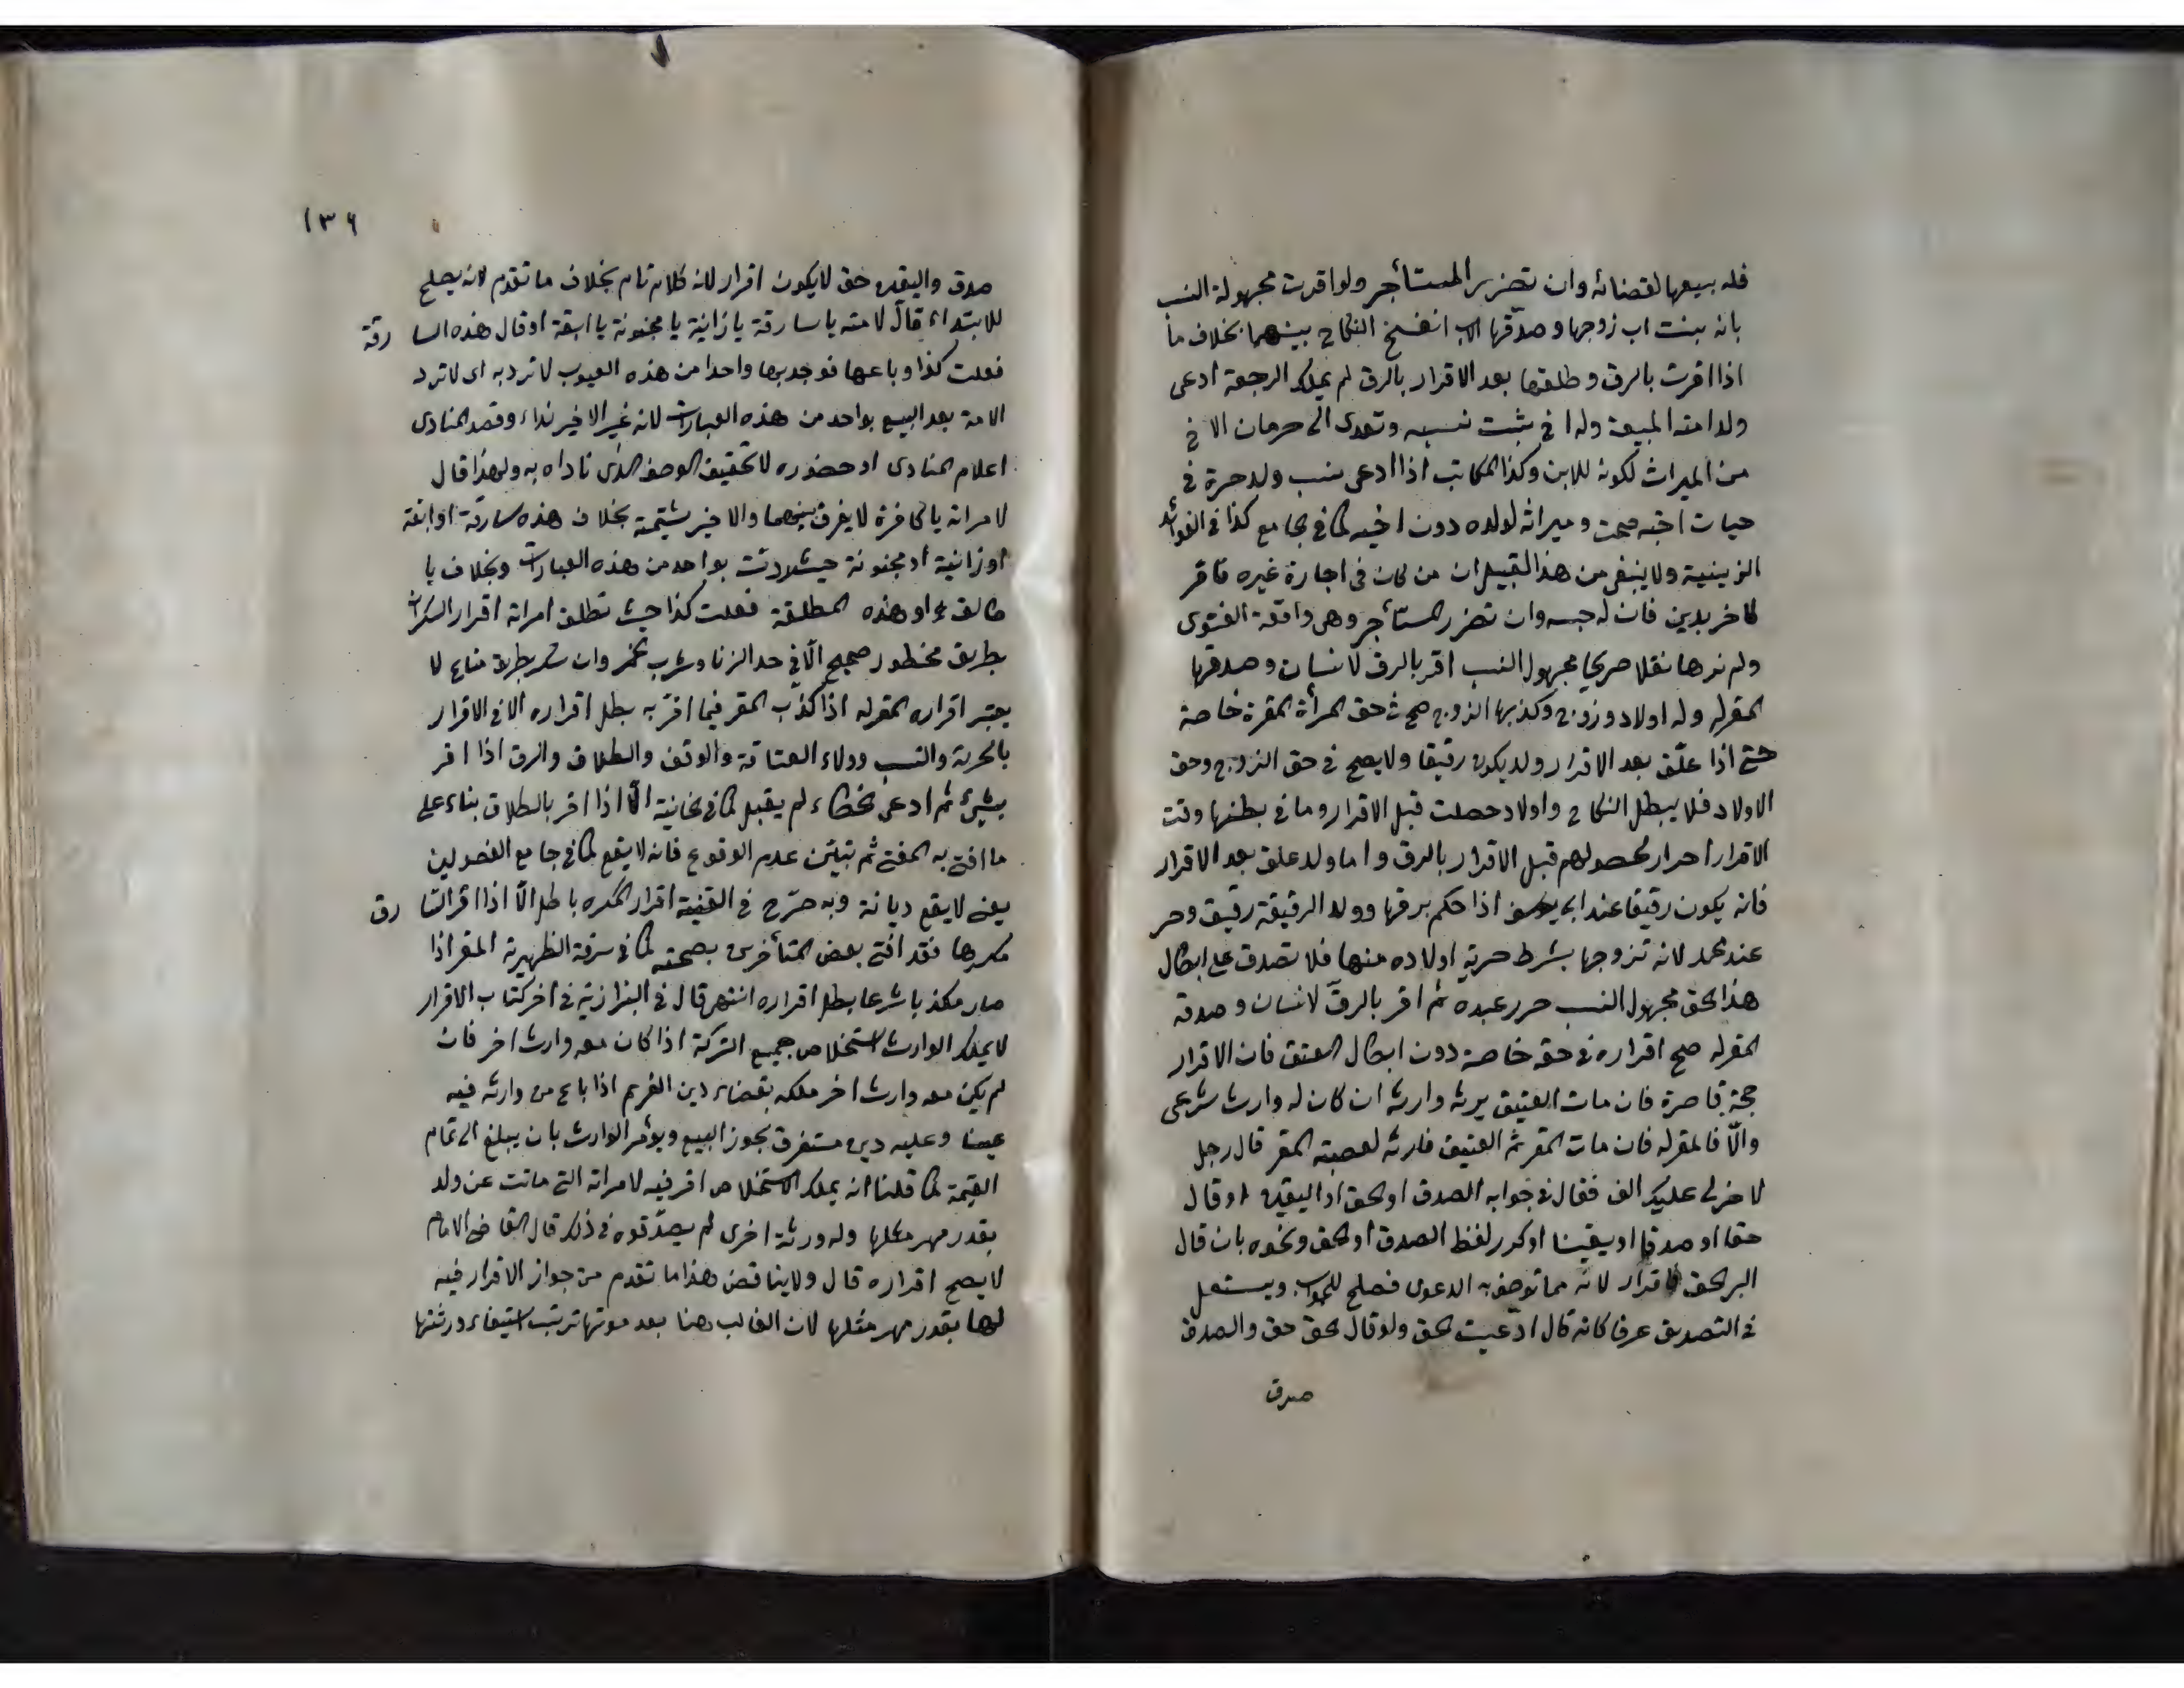 فله بيعها لقضائه وان تضرر المستأجر ولو اقرت مجهولة النسب
بانه بنت اب زوجها وصدقها الاب انفسخ النكاح بينهما بخلاف ما
اذا اقرت بالرق وطلقها بعد الاقرار بالرق لم يملك الرجعة ادعى
ولد امته المبيعة وله اخ يثبت نسبه وتعدى الى حرمان الاخ
من الميراث لكونه للابن وكذا المكاتب اذا ادعى نسب ولد حرة في
حيات اخيه صحت وميراثه لولده دون اخيه كما في الجامع كذا في الفوائد
الزينية ولا ينبغي من هذا القبيل ان من كان في اجارة غيره فاقر
لاخر بدين فان له حبسه وان تضرر المستأجر وهي واقعة الفتوى
ولم نرها نقلا صريحا مجهول النسب اقر بالرق لانسان وصدقها
المقر له وله اولاد وزوج وكذبها الزوج صح في حق المرأة المقرة خاصة
حتى اذا علق بعد الاقرار ولد يكون رقيقا ولا يصح في حق الزوج وحق
الاولاد فلا يبطل النكاح واولاد حصلت قبل الاقرار وما في بطنها وقت
الاقرار احرار لحصولهم قبل الاقرار بالرق واما ولد علق بعد الاقرار
فانه يكون رقيقا عند ابي يوسف اذا حكم برقها وولد الرقيقة رقيق وحر
عند محمد لانه تزوجها بشرط حرية اولاده منها فلا تصدق على ابطال
هذا الحق مجهول النسب حرر عبده ثم اقر بالرق لانسان وصدقه
المقر له صح اقراره في حقه خاصة دون ابطال العتق فان الاقرار
حجة قاصرة فان مات العتيق يرثه وارثه ان كان له وارث شرعي
والا فالمقر له فان مات المقر ثم العتيق فارثه لعصبة المقر قال رجل
لاخر لي عليك الف فقال في جوابه الصدق او الحق او اليقين او قال
حقا او صدقا او يقينا او كرر لفظ الصدق او الحق ونحوه بان قال
البر الحق فاقرار لانه مما توصف به الدعوى فصلح للجواب ويستعمل
في التصديق عرفا كانه قال ادعيت الحق ولو قال الحق حق والصدق
صدق
١٣٦
صدق واليقين حق لا يكون اقرار لانه كلام تام بخلاف ما تقدم لانه يصلح
للابتداء قال لامته يا سارقة يا زانية يا مجنونة يا ابقة او قال هذه السارقة
فعلت كذا وباعها فوجد بها واحدا من هذه العيوب لا ترد به اى لا ترد
الامة بعد البيع بواحد من هذه العبارات لانه غير الاخير نداء وقصد المنادى
اعلام المنادى او حضوره لا تحقيق الوصف الذى ناداه به ولهذا قال
لامراته يا كافرة لا يفرق بينهما والاخير شتيمة بخلاف هذه سارقة او ابقة
او زانية او مجنونة حيث ردت بواحد من هذه العبارات وبخلاف يا
طالق او هذه المطلقة فعلت كذا حيث تطلق امراته اقرار السكران
بطريق محظور صحيح الا في حد الزنا وشرب الخمر وان سكر بطريق مباح لا
يعتبر اقراره المقر له اذا كذب المقر فيما اقر به بطل اقراره الا في الاقرار
بالحرية والنسب وولاء العتاقة والوقف والطلاق والرق اذا اقر
بشيء ثم ادعى الخطاء لم يقبل كما في الخانية الا اذا اقر بالطلاق بناء على
ما افتى به المفتى ثم تبين عدم الوقوع فانه لا يقع كما في جامع الفصولين
يعني لا يقع ديانة وبه صرح في القنية اقرار المكره باطل الا اذا اقر السارق
مكرها فقد افتى بعض المتأخرين بصحته كما في سرقة الظهيرية المقر اذا
صار مكذبا شرعا بطل اقراره انتهى قال في البزازية في اخر كتاب الاقرار
لا يملك الوارث استخلاص جميع التركة اذا كان معه وارث اخر فان
لم يكن معه وارث اخر ملكه بقضاء دين الغريم اذا باع من وارثه فيه
عينا وعليه دين مستغرق يجوز البيع ويؤمر الوارث بان يبلغ الى تمام
القيمة كما قلنا انه يملك الاستخلاص اقر فيه لامراته التى ماتت عن ولد
بقدر مهر مثلها وله ورثة اخرى لم يصدقوه في ذلك قال القاضى الامام
لا يصح اقراره قال ولا يناقض هذا ما تقدم من جواز الاقرار فيه
لها بقدر مهر مثلها لان الغالب هنا بعد موتها ترتب استيفاء ورثتها